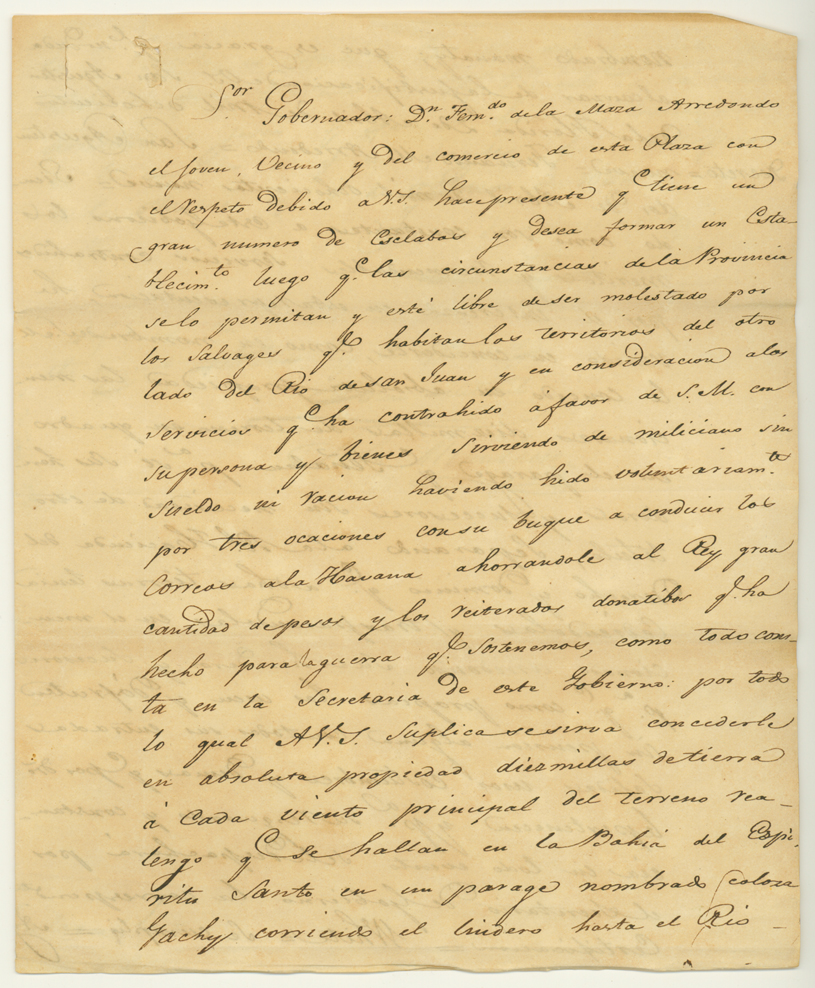 Sor Gobernador: Dn Ferndo de la Maza Arredondo
el Joven, Vecino y del comercio de esta Plaza con
el respeto debido a V.S. hace presente q.e tiene un
gran numero de Esclabos y desea formar un Esta-
blecim.to luego q.e las circunstancias de la Provincia
se lo permitan y esté libre de ser molestado por
los Salvages q.e habitan los territorios del otro
lado del Rio de san Juan y en consideracion a los
servicios q.e ha contrahido á favor de S.M. con
su persona y bienes sirviendo de miliciano sin
sueldo ni racion haviendo hido voluntariam.te
por tres ocaciones con su buque a conducir los
Correos a la Havana ahorrandole al Rey gran
cantidad de pesos y los reiterados donatibos q.e ha
hecho para la guerra q.e sostenemos, como todo cons-
ta en la Secretaria de este Gobierno: por todo
lo qual A V.S. Suplica se sirva concederle
en absoluta propiedad diez millas de tierra
á cada viento principal del terreno rea-
lengo q.e se hallan en la Bahia del Espi-
ritu Santo en un parage nombrado
corriendo el lindero hasta el Rio -